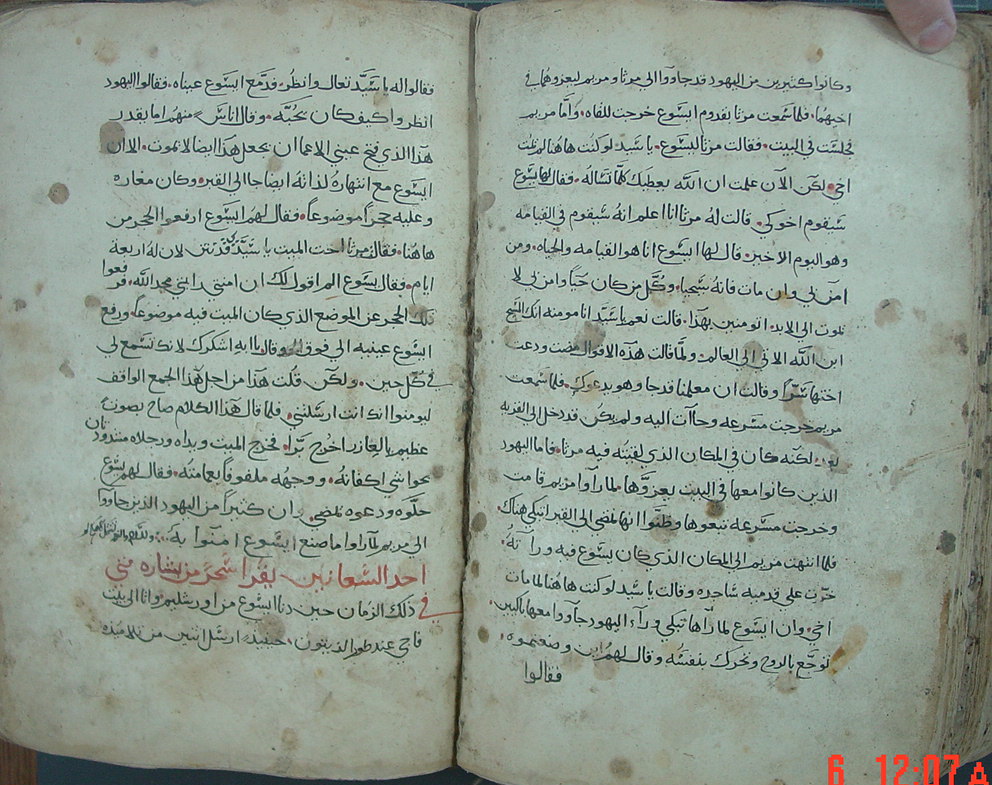 وكانوا كثيرين من اليهود قد جاووا الي مرثا ومريم ليعزوهما في
اخيهما. فلما سمعت مرثا بقدوم ايسوع خرجت للقاه. واما مريم
فجلست في البيت. فقالت مرثا ليسوع. يا سيد لو كنت هاهنا لم يمت
اخي. لكن الآن علمت ان الله يعطيك كلما تساله. فقال لها يسوع
سيقوم اخوكي. قالت له مرثا انا اعلم انه سيقوم في القيامه
وهو اليوم الاخير. قال لها ايسوع انا هو القيامه والحياه. ومن
امن بي وان مات فانه سيحيا. وكل من كان حيا وامن بي لا
يموت الي الابد. اتومنين بهذا. قالت نعم يا سيد انا مومنه انك المسيح
ابن الله الاتي الي العالم. ولما قالت هذه الاقوال مضت ودعت
اختها سرا وقالت ان معلمنا قد جا وهو يدعوك. فلما سمعت
مريم خرجت مسرعه وجاآت اليه ولم يكن قد دخل الي القريه
بعد. لكنه كان في المكان الذي لقيته فيه مرثا. فاما اليهود
الذين كانوا معها في البيت يعزوها لما راوا مريم قامت
وخرجت مسرعه تبعوها وظنوا انها تمضي الي القبر لتبكي هناك.
فلما انتهت مريم الي المكان الذي كان يسوع فيه وراته.
خرت علي قدميه ساجده وقالت يا سيد لو كنت هاهنا لما مات
اخي. وان ايسوع لما راها تبكي وراآ اليهود جاووا معها باكيين.
توجع بالروح وتحرك بنفسه وقال لهم اين وضعتموه.
فقالوا
فقالوا له يا سيد تعال وانظر. فدمع ايسوع عيناه. فقالوا اليهود
انظروا كيف كان يحبه. وقال اناس منهم اما يقدر
هذا الذي فتح عيني الاعما ان يجعل هذا ايضا لا يموت. الا ان
ايسوع مع انتهاره لذاته ايضا جا الي القبر. وكان مغاره
وعليه حجرا موضوعا. فقال لهم ايسوع ارفعوا الحجر من
هاهنا. فقالت مرثا اخت الميت يا سيد قد نتن لان له اربعة
ايام. فقال يسوع الم اقول لك ان امنتي راتي مجد الله. فرفعوا
تلك الحجر عن الموضع الذي كان الميت فيه موضوعا. ورفع
ايسوع عينيه الي فوق وقال يا ابه اشكرك لانك تسمع لي
في كل حين. ولكن قلت هذا من اجل هذا الجمع الواقف
ليومنوا انك انت ارسلتني. فلما قال هذا الكلام صاح بصوت
عظيم يا لعازر اخرج برا. فخرج الميت ويداه ورجلاه مشدودتان
بحواشي اكفانه. ووجهه ملفوفا بعمامته. فقال لهم يسوع
حلوه ودعوه يمضي. وان كثيرا من اليهود الذين جاووا
الي مريم لما راوا ما صنع ايسوع امنوا به.
احد الشعانين يقرا سحر من بشاره متي
في ذلك الزمان حين دنا ايسوع من اورشليم. واتا الي بيت
فاجي عند طور الزيتون. حينيذ ارسل اثنين من تلاميذه
6 12:07